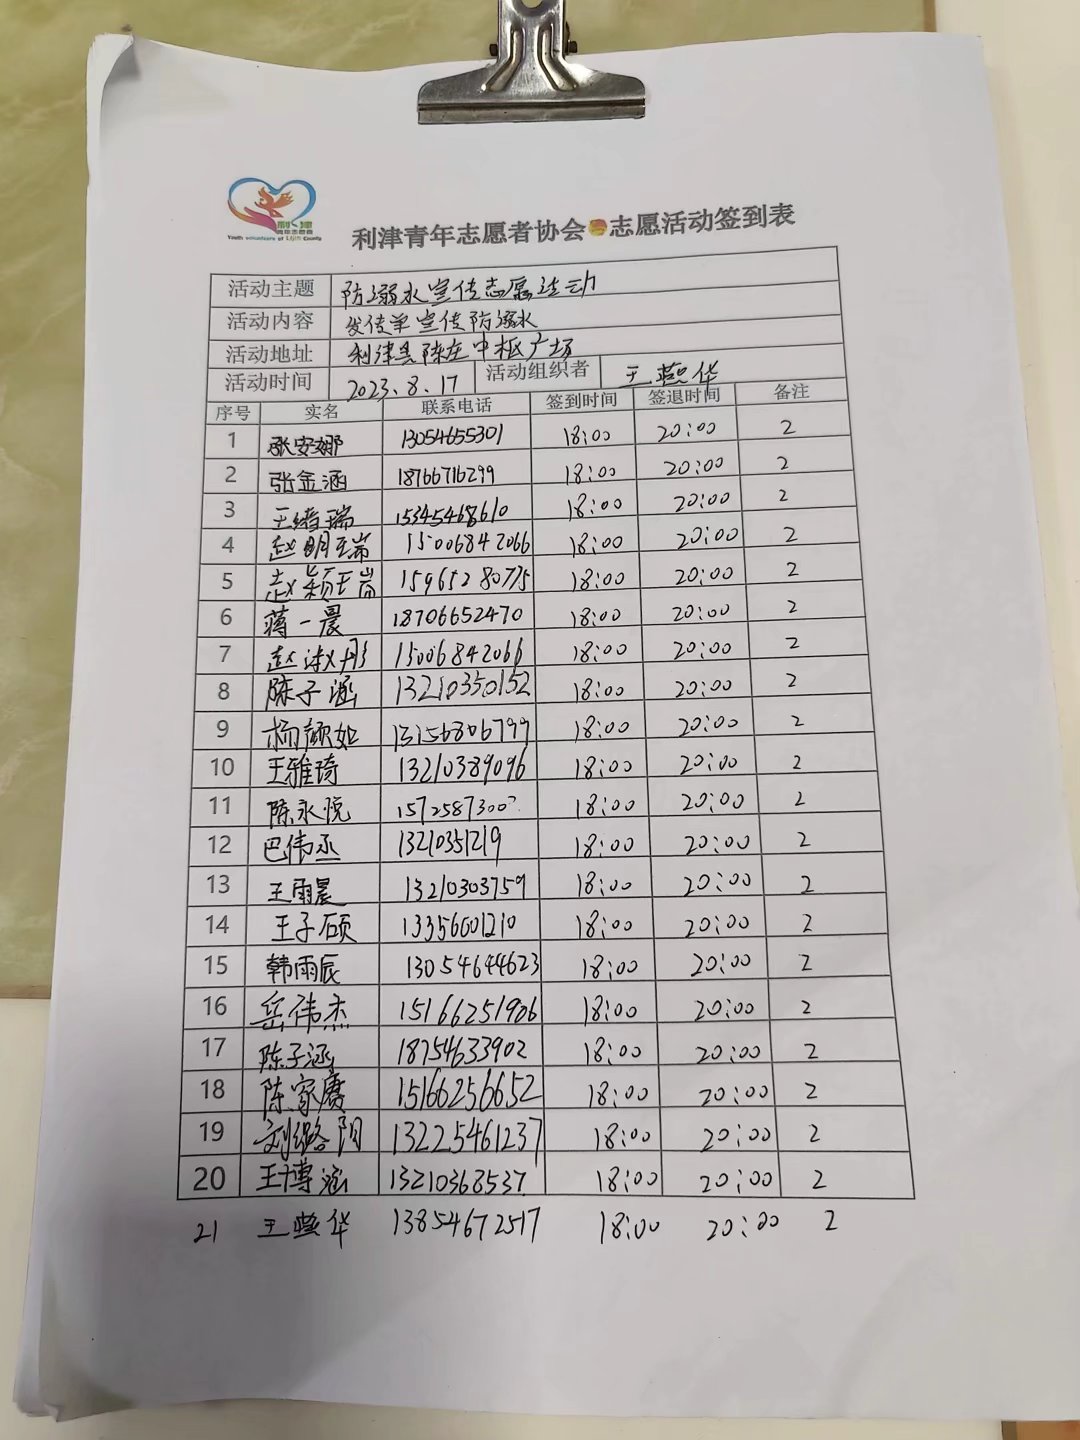 利津
青年志愿者
Youth volunteers of Lijin County
利津青年志愿者协会 志愿活动签到表
活动主题 防溺水宣传志愿活动
活动内容 发传单宣传防溺水
活动地址 利津县陈庄中枢广场
活动时间 2023.8.17 活动组织者 王燕华
序号 实名 联系电话 签到时间 签退时间 备注
1 张安娜 13054655301 18:00 20:00 2
2 张金涵 18766716299 18:00 20:00 2
3 王绪瑞 15345468610 18:00 20:00 2
4 赵明瑞 15006842066 18:00 20:00 2
5 赵颖 15965280775 18:00 20:00 2
6 蒋一晨 18706652470 18:00 20:00 2
7 赵淑彤 15006842066 18:00 20:00 2
8 陈子涵 13210350152 18:00 20:00 2
9 杨颜如 13156806799 18:00 20:00 2
10 王雅琦 13210389096 18:00 20:00 2
11 陈永悦 18:00 20:00 2
12 巴伟丞 13210351219 18:00 20:00 2
13 王雨晨 13210303759 18:00 20:00 2
14 王子硕 13356601210 18:00 20:00 2
15 韩雨辰 13054644623 18:00 20:00 2
16 岳伟杰 15166251906 18:00 20:00 2
17 陈子涵 18754633902 18:00 20:00 2
18 陈家赓 15166256652 18:00 20:00 2
19 刘璐阳 13225461237 18:00 20:00 2
20 王博涵 13210368537 18:00 20:00 2
21 王燕华 13854672517 18:00 20:00 2